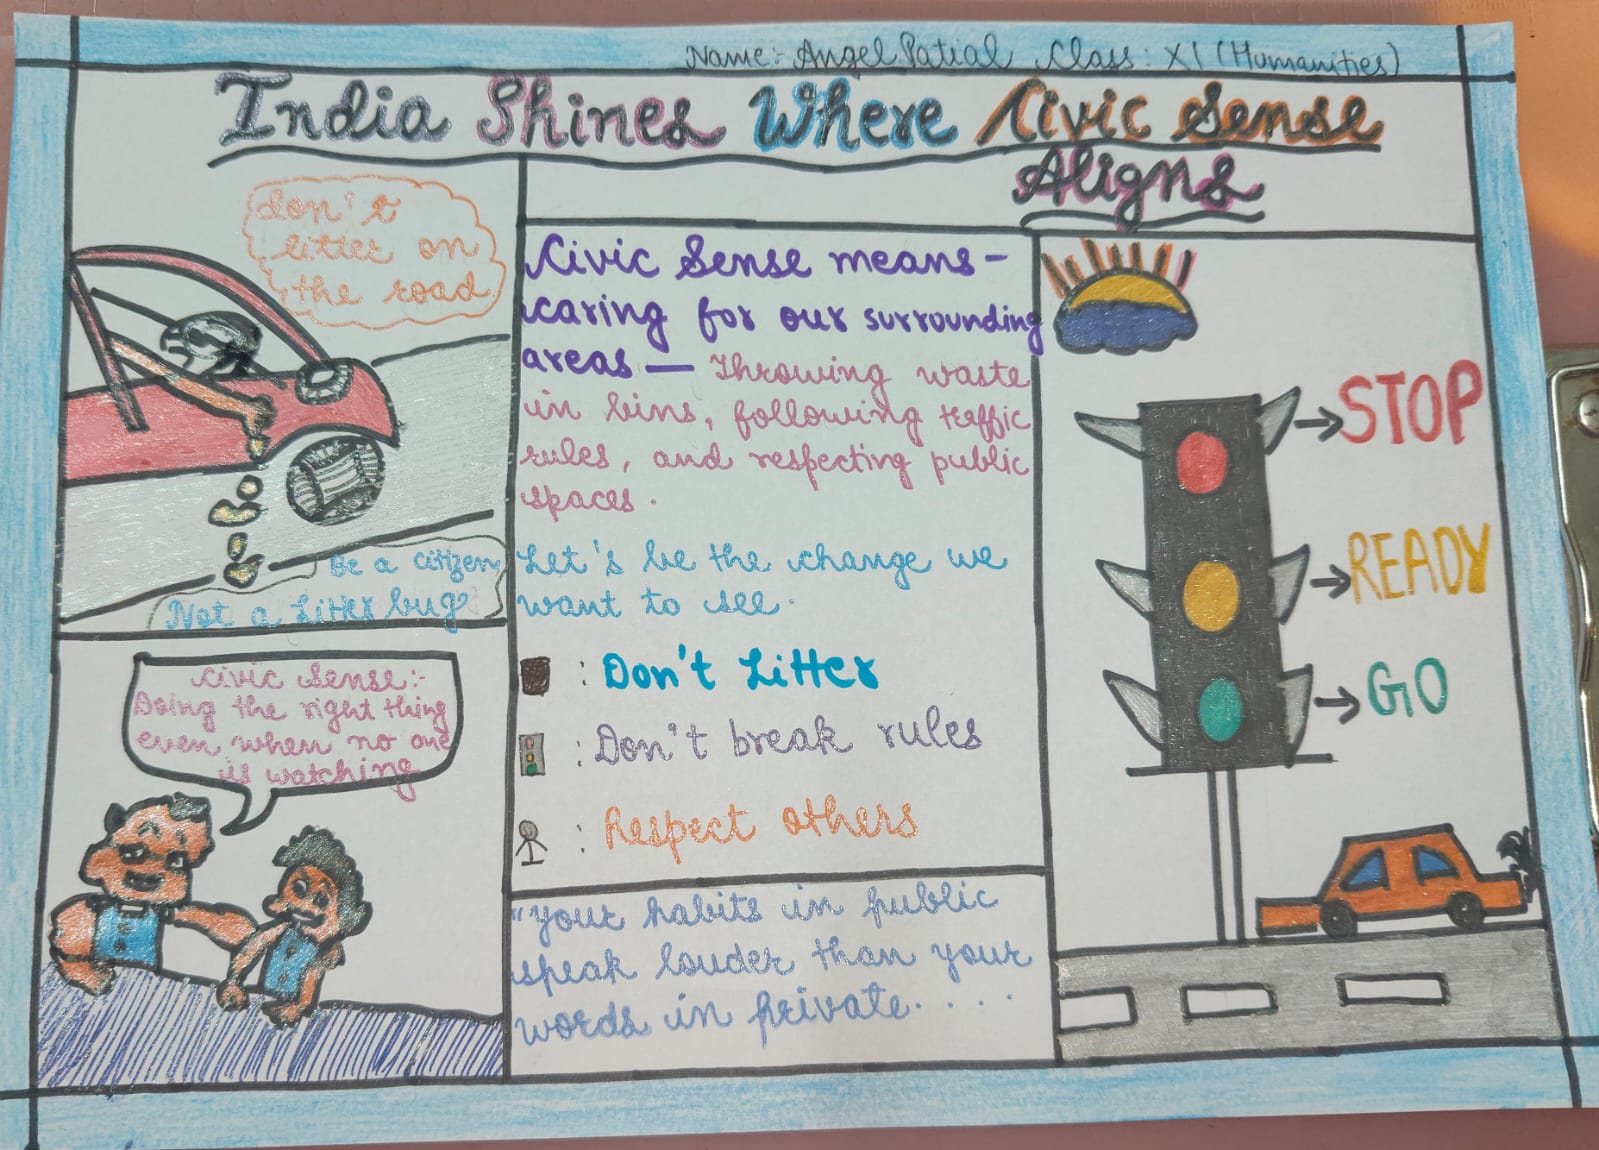 Name:- Angel Patial Class: XI (Humanities)
India Shines Where Civic Sense
Aligns
don't
litter on
the road
Be a citizen
Not a Litter bug
Civic Sense:-
Doing the right thing
even when no one
is watching
Civic Sense means-
caring for our surrounding
areas — Throwing waste
in bins, following traffic
rules, and respecting public
spaces.
Let's be the change we
want to see.
: Don't Litter
: Don't break rules
: Respect others
"your habits in public
speak louder than your
words in private. . . .
→ STOP
→ READY
→ GO